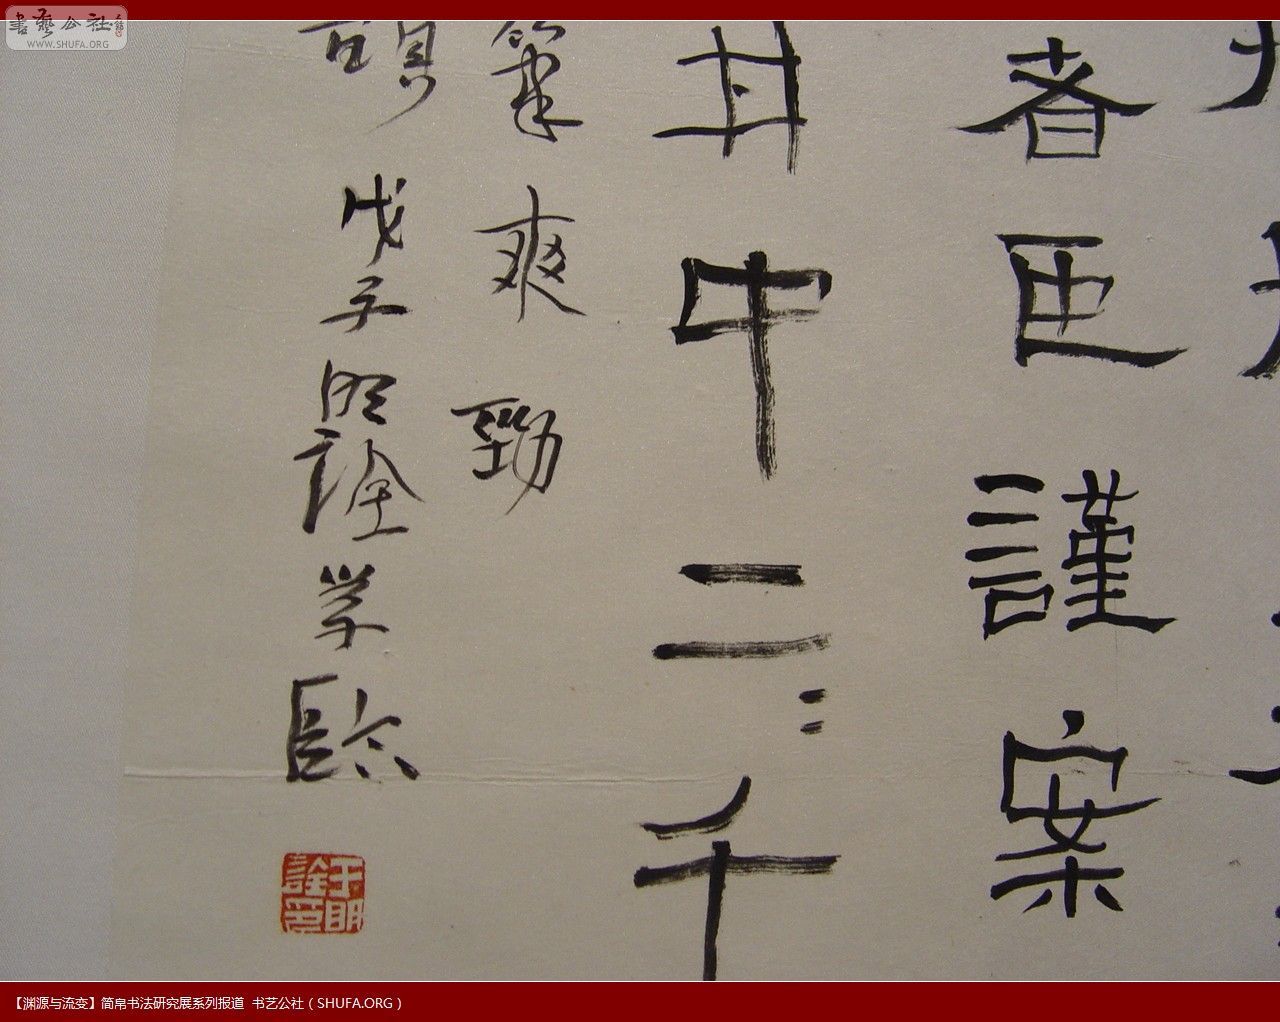 書藝公社
WWW.SHUFA.ORG
者臣謹案
井中二二千
筆爽勁
戊子明詮學臨
于明詮印
【渊源与流变】简帛书法研究展系列报道 书艺公社（SHUFA.ORG）